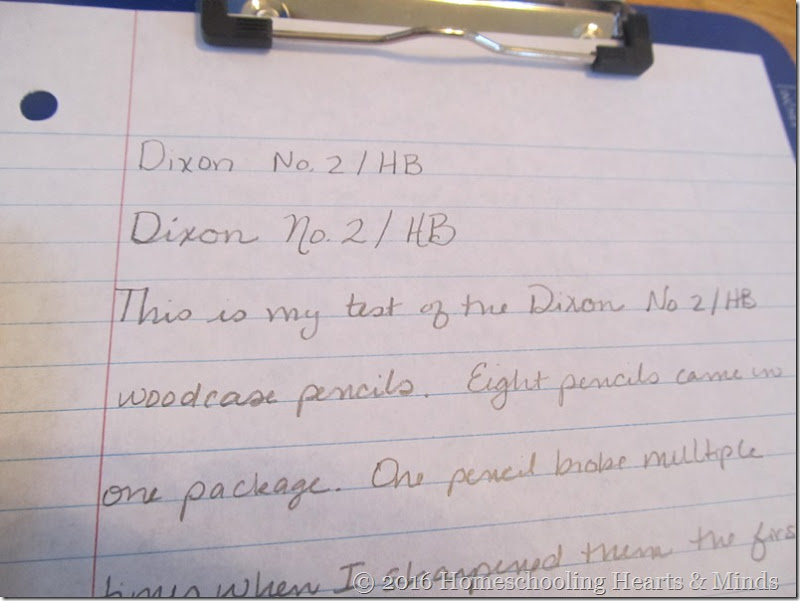 Dixon No. 2 / HB
Dixon No. 2 / HB
This is my test of the Dixon No 2/HB
woodcase pencils. Eight pencils came in
one package. One pencil broke multiple
times when I sharpened them the firs
© 2016 Homeschooling Hearts & Minds